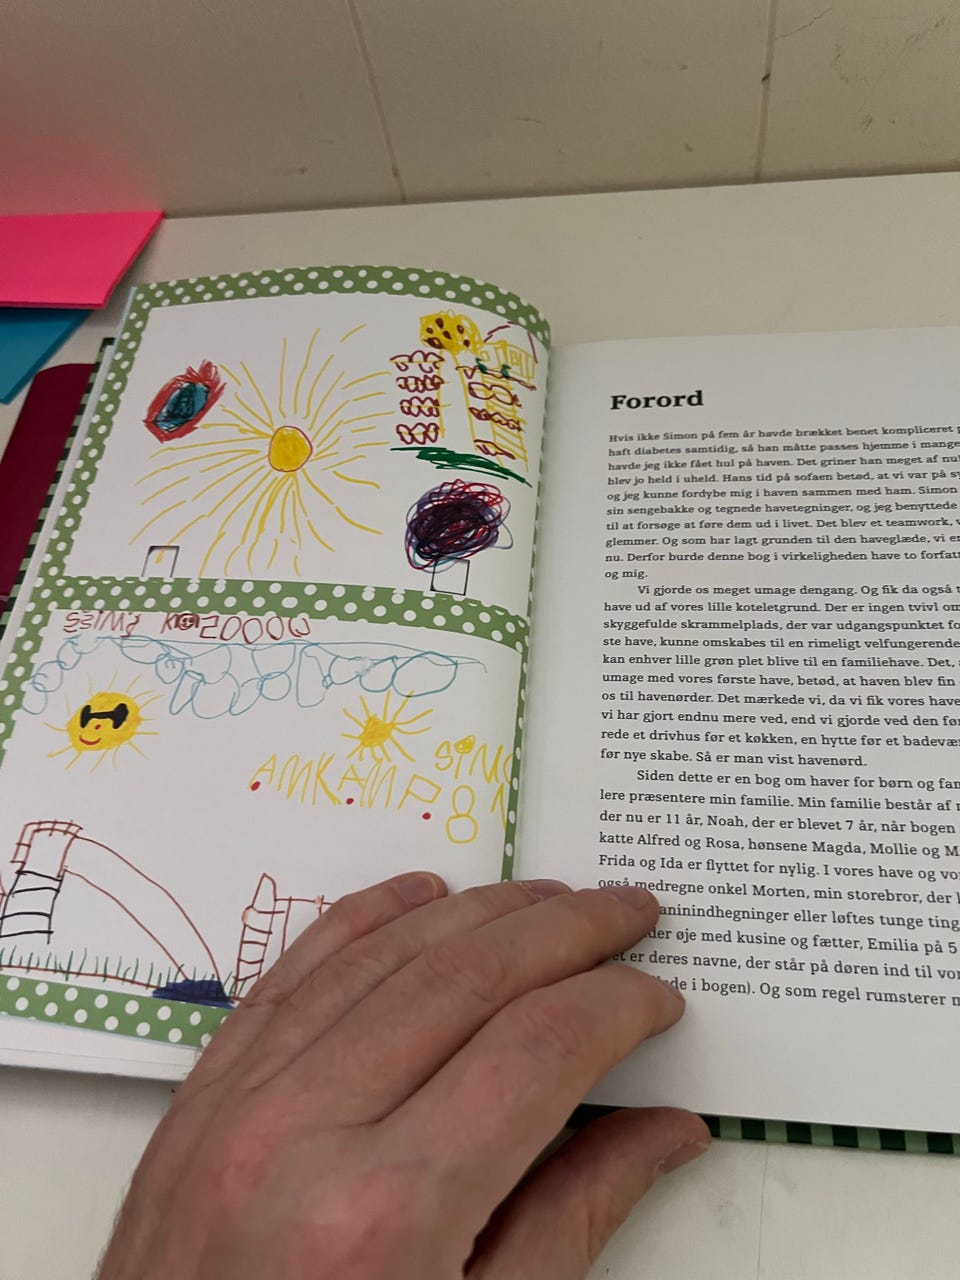 KO2000
AMKAMP
8
Forord
Hvis ikke Simon på fem år havde brækket benet kompliceret
haft diabetes samtidig, så han måtte passes hjemme i mange
havde jeg ikke fået hul på haven. Det griner han meget af
blev jo held i uheld. Hans tid på sofaen betød, at vi var på
og jeg kunne fordybe mig i haven sammen med ham. Simon
sin sengebakke og tegnede havetegninger, og jeg benyttede
til at forsøge at føre dem ud i livet. Det blev et teamwork,
glemmer. Og som har lagt grunden til den haveglæde, vi
nu. Derfor burde denne bog i virkeligheden have to
og mig.
Vi gjorde os meget umage dengang. Og fik da også
have ud af vores lille koteletgrund. Der er ingen tvivl om
skyggefulde skrammelplads, der var udgangspunktet
ste have, kunne omskabes til en rimeligt velfungerende
kan enhver lille grøn plet blive til en familiehave. Det,
umage med vores første have, betød, at haven blev fin
os til havenørder. Det mærkede vi, da vi fik vores
vi har gjort endnu mere ved, end vi gjorde ved den
rede et drivhus før et køkken, en hytte før et
før nye skabe. Så er man vist havenørd.
Siden dette er en bog om haver for børn og
lere præsentere min familie. Min familie består af
der nu er 11 år, Noah, der er blevet 7 år, når bogen
katte Alfred og Rosa, hønsene Magda, Mollie og
Frida og Ida er flyttet for nylig. I vores have og
også medregne onkel Morten, min storebror, der
eller løftes tunge
øje med kusine og fætter, Emilia på 5
er deres navne, der står på døren ind til
i bogen). Og som regel rumsterer